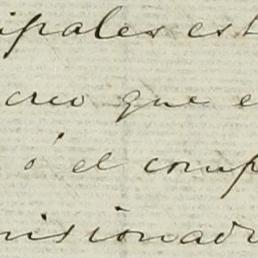 ipales est
creo que e
ó el comp
misionad